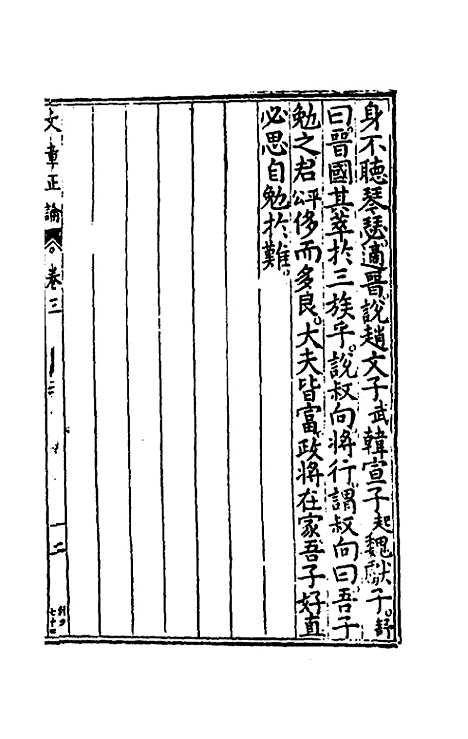 身不聽琴瑟適晉說趙文子武韓宣子起魏獻子。舒
曰晉國其萃於三族乎。說叔向將行謂叔向曰吾子
勉之君侈而多良。大夫皆富政將在家吾子好直
必思自勉於難。
文章正論 卷三